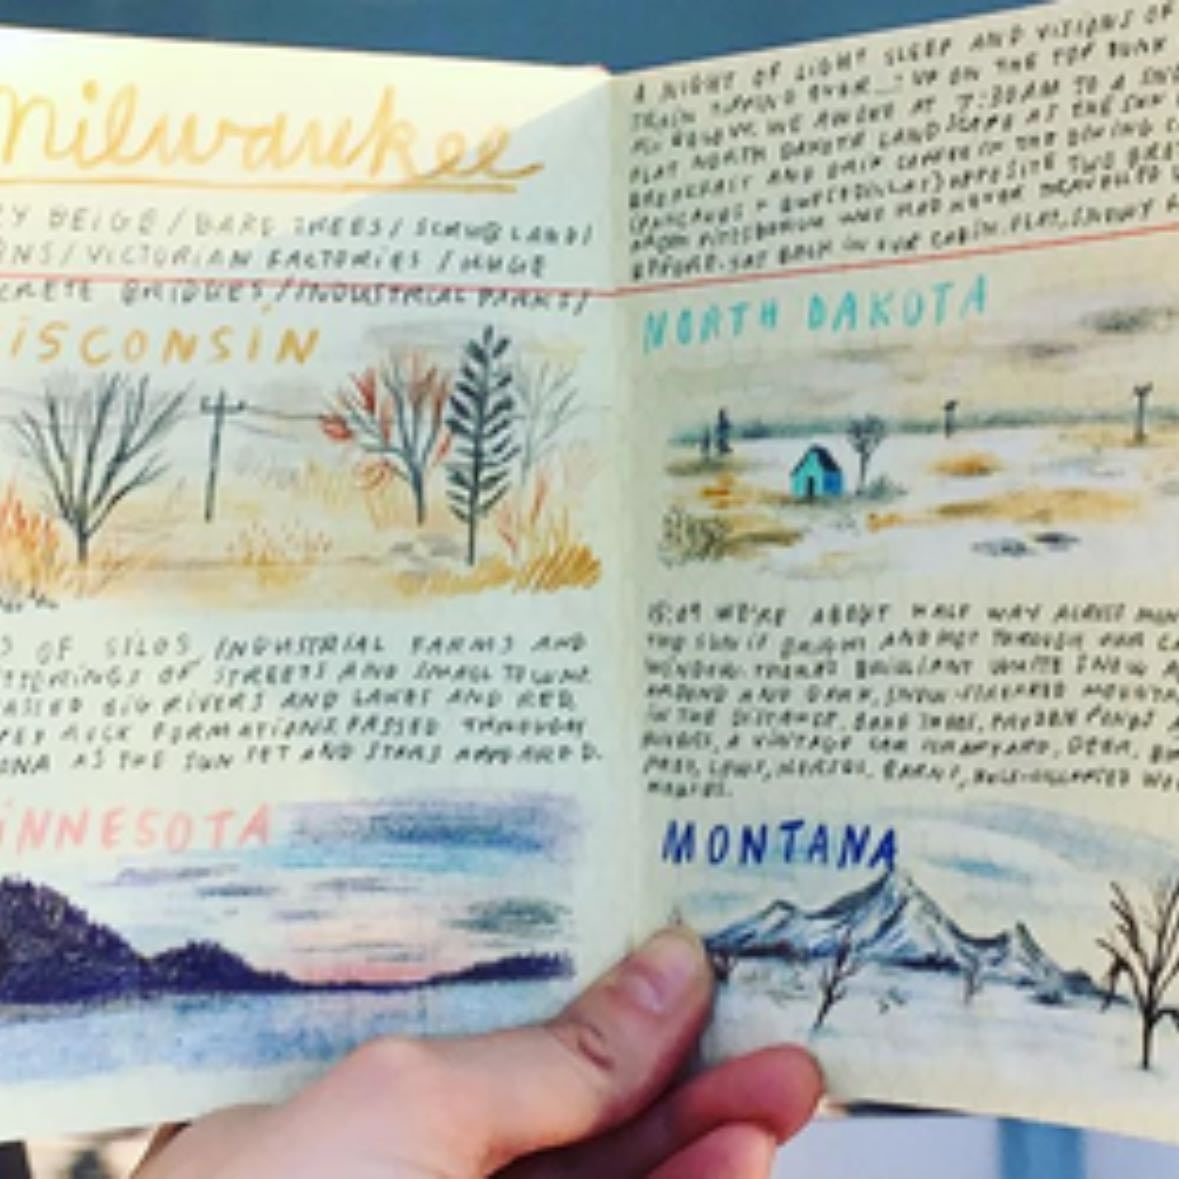 Milwaukee
RY BEIGE / BARE TREES / SCRUBLAND /
NS / VICTORIAN FACTORIES / HUGE
CRETE BRIDGES / INDUSTRIAL PARKS /
ISCONSIN
S OF SILOS, INDUSTRIAL FARMS AND
TTERINGS OF STREETS AND SMALL TOWNS
ASSED BIG RIVERS AND LAKES AND RED,
ROCK FORMATIONS. PASSED THROUGH
ONA AS THE SUN SET AND STARS APPEARED.
INNESOTA
A NIGHT OF LIGHT SLEEP AND VISIONS OF
TRAIN TIPPING OVER... UP ON THE TOP BUNK
WE AWOKE AT 7:30AM TO A SNO
FLAT NORTH DAKOTA LANDSCAPE AS THE SUN
BREAKFAST AND COFFEE IN THE DINING C
(PANCAKES + QUESADILLAS) OPPOSITE TWO BROT
FROM PITTSBURGH WHO HAD NEVER TRAVELLED
BEFORE. SAT BACK IN OUR CABIN. FLAT, SNOWY
NORTH DAKOTA
15:09 WE'RE ABOUT HALF WAY ACROSS MON
THE SUN IS BRIGHT AND HOT THROUGH OUR CA
WINDOW. THERE'S BRILLIANT WHITE SNOW A
AROUND AND DARK, SNOW-STREAKED MOUNTA
IN THE DISTANCE. BARE TREES, FROZEN PONDS A
RIVERS, A VINTAGE CAR GRAVEYARD, DEER,
COWS, HORSES, BARNS, HALF-COLLAPSED WO
HOUSES.
MONTANA